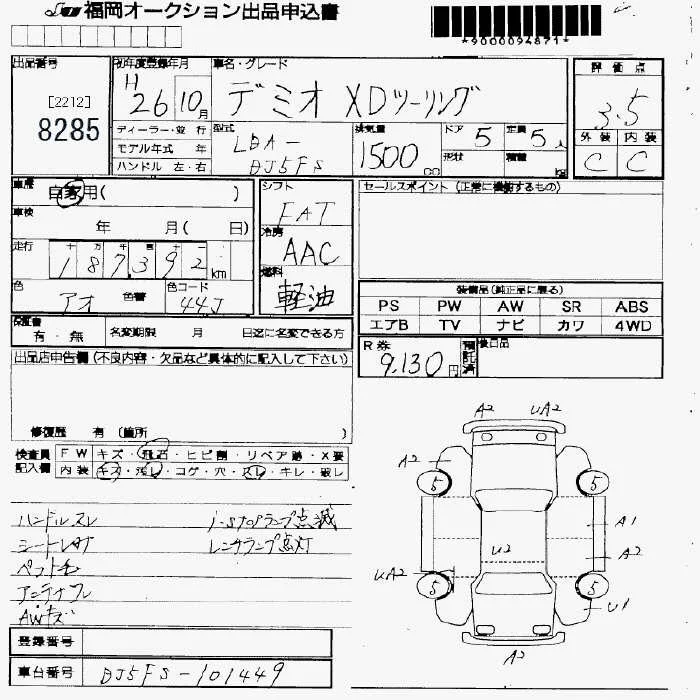 福岡オークション出品申込書
*9000094871*
出品番号
[2212]
8285
初年度登録年月
H
26 10月
車名・グレード
デミオ XDツーリング
評価点
3.5
外装 内装
C C
ディーラー・並行
モデル年式 年
ハンドル 左・右
型式
LDA-
DJ5FS
排気量
1500 cc
ドア 5
形状
定員 5人
積量 kg
車歴
自家用( )
車検
年 月( 日)
走行
十 万 千 百 十 一
187392 km
色
アオ 色替
色コード
44J
シフト
FAT
冷房
AAC
燃料
軽油
セールスポイント (正常に機能するもの)
装備品(純正品に限る)
PS PW AW SR ABS
エアB TV ナビ カワ 4WD
保証書
有・無
名変期限 月 日迄に名変できる方
R券
9,130円
預託済
後日品
出品店申告欄 (不良内容・欠品など具体的に記入して下さい)
修復歴 有 (箇所 )
検査員記入欄
FW キズ・飛石・ヒビ割・リペア跡・X要
内装 キズ・汚レ・コゲ・穴・スレ・キレ・破レ
ハンドルスレ i-stopランプ点滅
レンチランプ点灯
ペット毛
AWキズ
登録番号
車台番号 DJ5FS-101449
A2 UA2
A2
5 5
A1
U2 A2
UA2
5 5
U1
A2